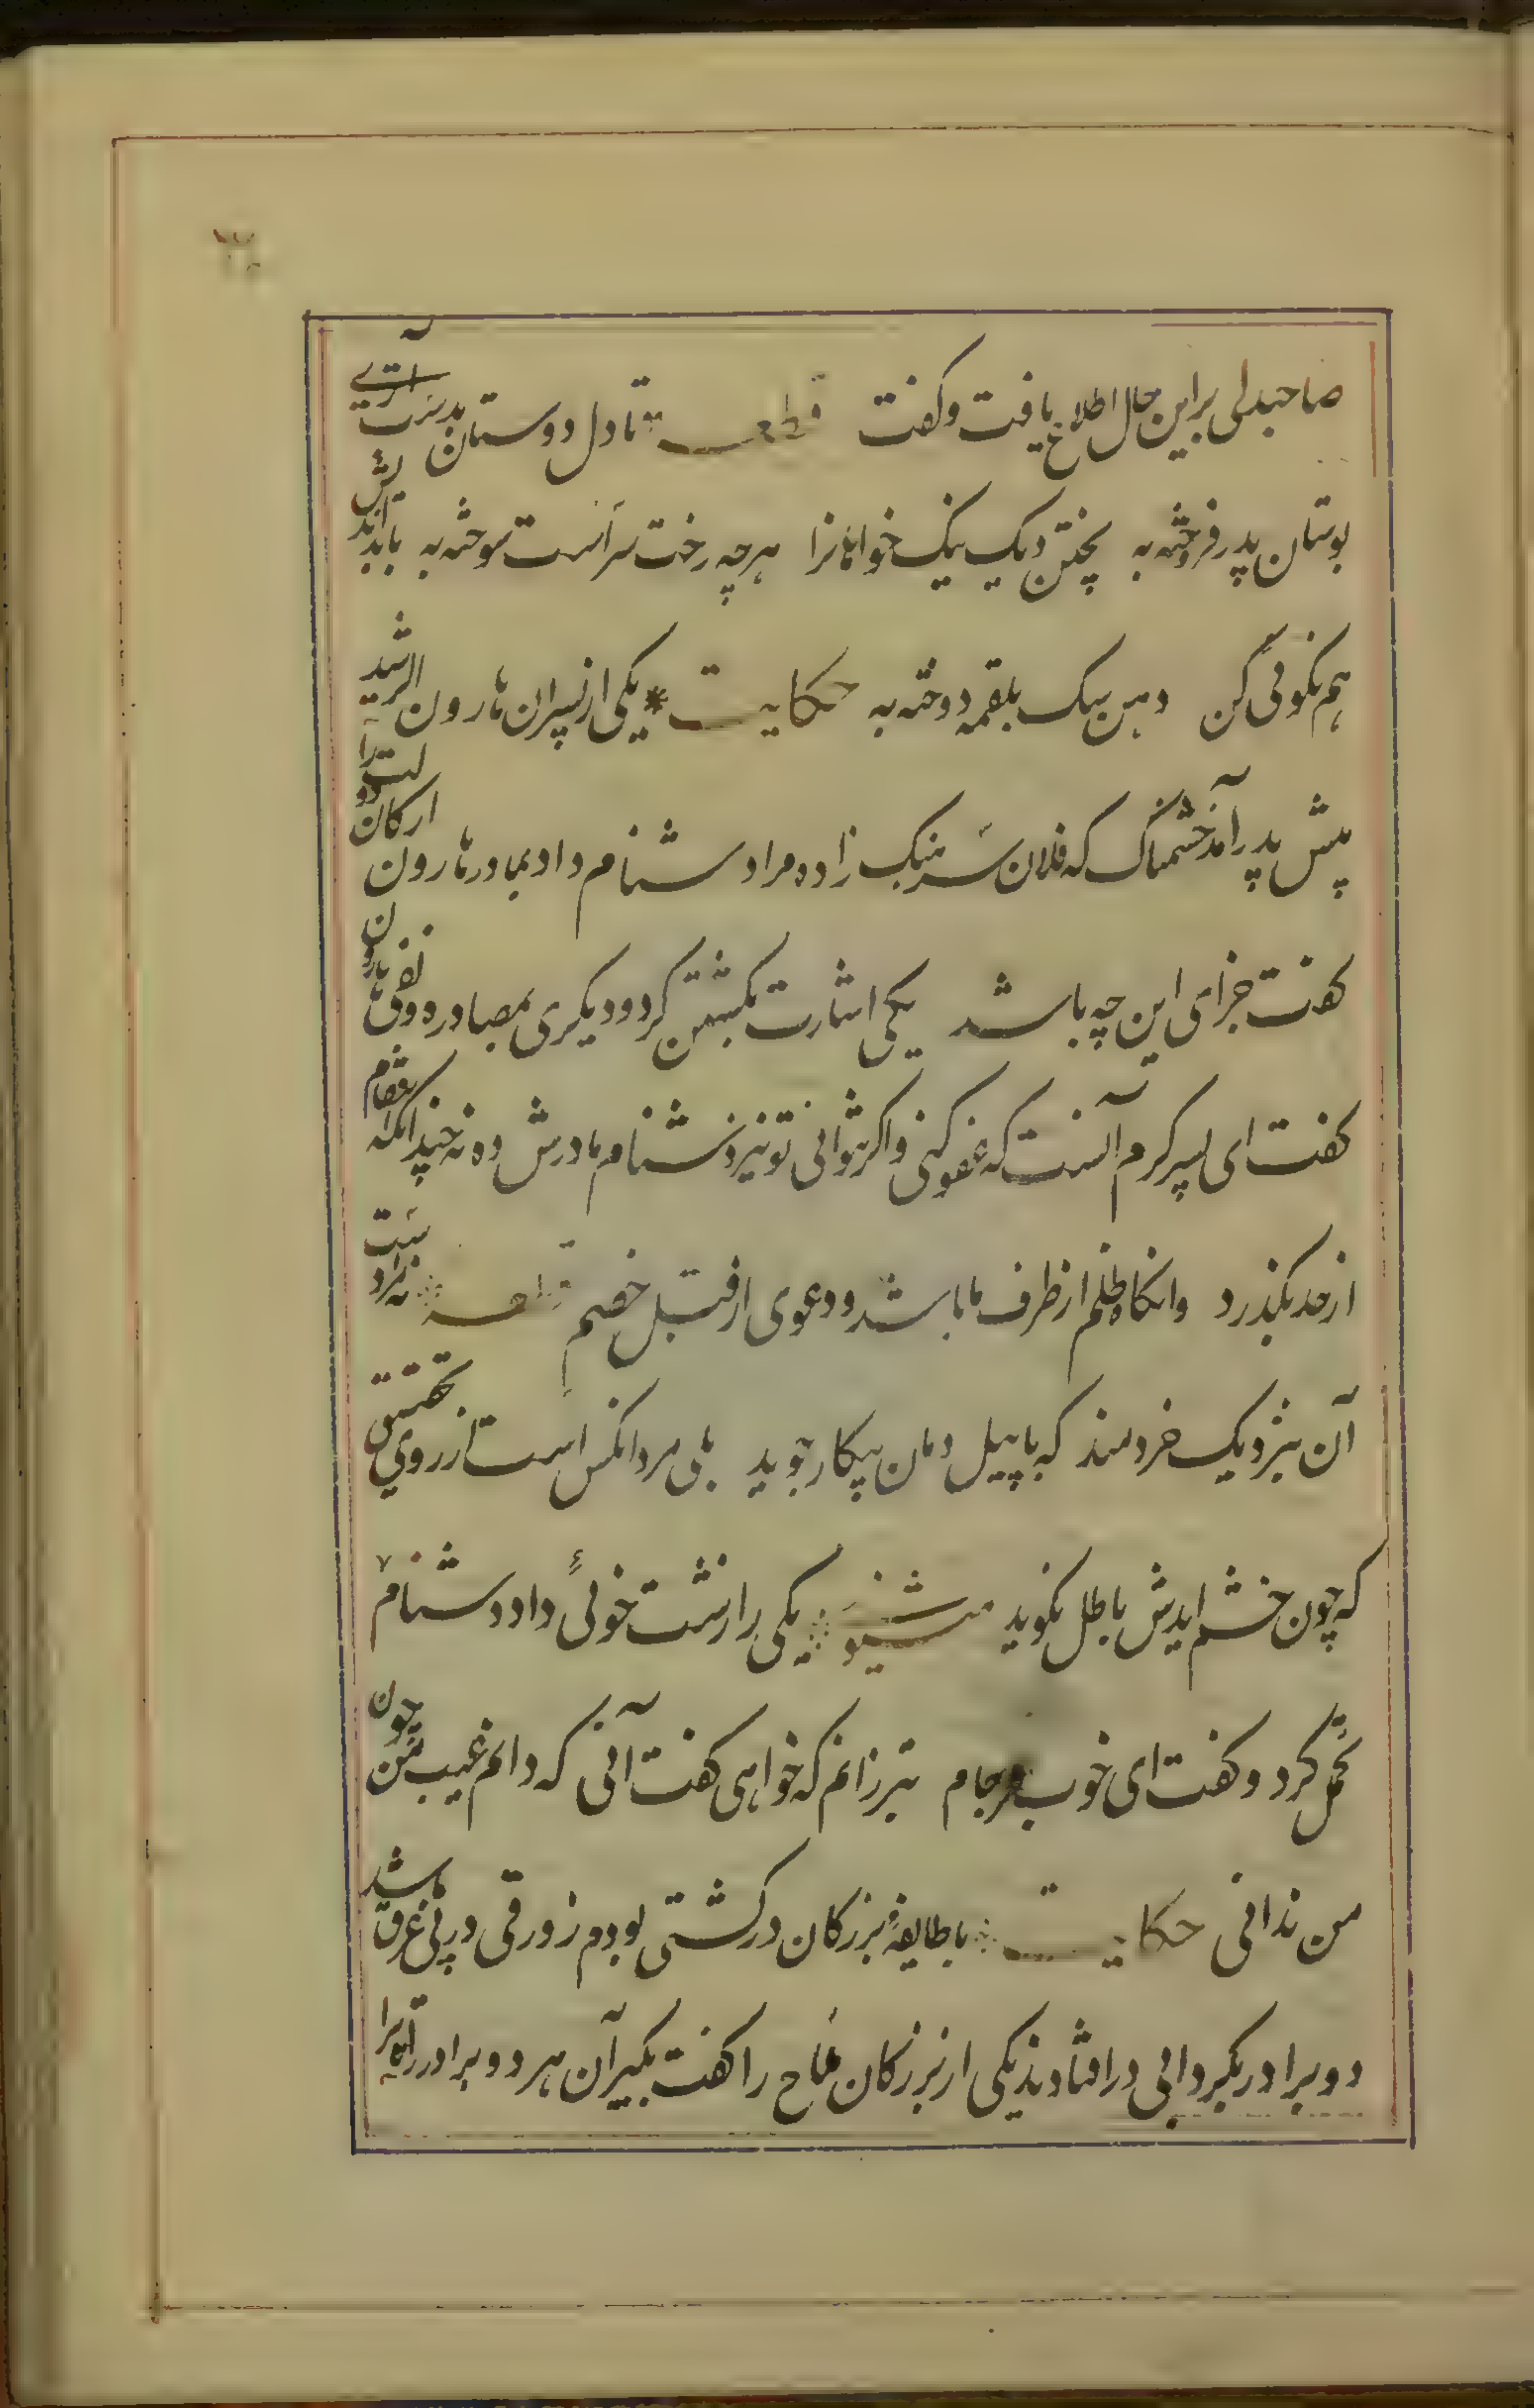 صاحبدلی براین حال اطلاع یافت و کفت قطعه تا دل دوستان بدست آری
بوستان پدر فروخته به پختن دیک نیک خواهانرا هرچه رخت سراست سوخته به بابداندیش
هم نکوئی کن دهن سک بلقمه دوخته به حکایت یکی از پسران هارون الرشید
پیش پدر آمد خشمناک که فلان سرهنک زاده مرا دشنام داد بمادر هارون ارکان دولت را
کفت جزای این چه باشد یکی اشارت بکشتن کرد و دیکری بمصادره و نفی هارون
کفت ای پسر کرم آنست که عفو کنی و اکر نتوانی تو نیز دشنام مادرش ده نه چندانکه انتقام
از حد بکذرد وانکاه ظلم از طرف ما باشد و دعوی از قبل خصم قطعه نه مرد است
آن بنزدیک خردمند که با پیل دمان پیکار جوید بلی مرد انکس است از روی تحقیق
که چون خشم ایدش باطل نکوید مثنوی یکی را زشت خوئی داد دشنام
تحمل کرد و کفت ای خوب فرجام بتر زانم که خواهی کفت آنی که دانم عیب من چون
من ندانی حکایت با طایفهٔ بزرکان در کشتی بودم زورقی در پی ما غرق شد
دو برادر بکردابی در افتادند یکی از بزرکان ملاح را کفت بکیر آن هر دو برادر را که ترا